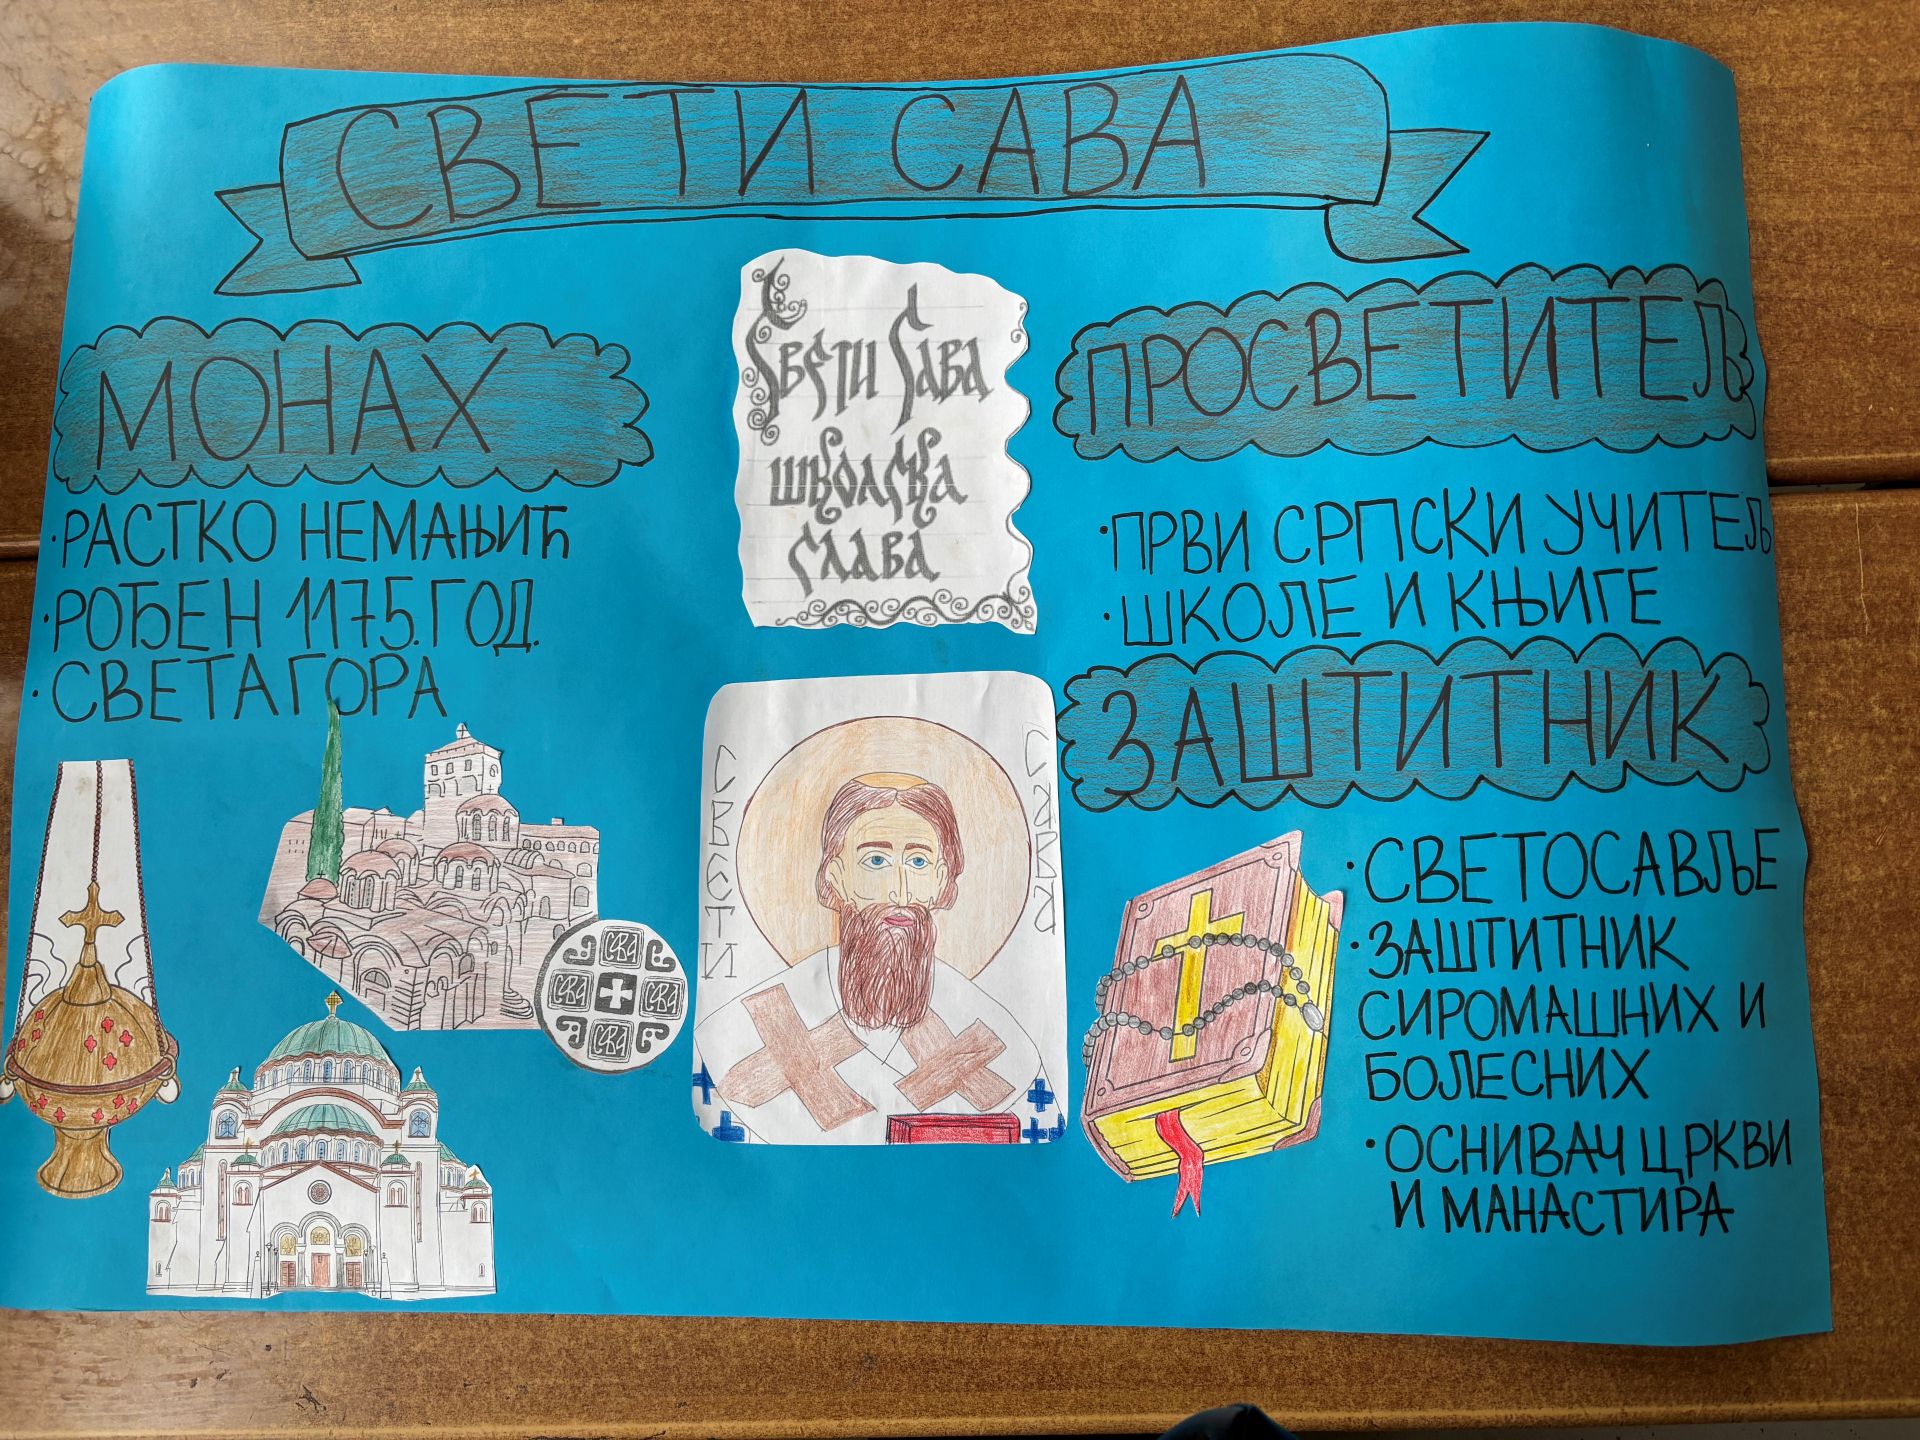 СВЕТИ САВА
МОНАХ
·РАСТКО НЕМАЊИЋ
·РОЂЕН 1175.ГОД.
·СВЕТА ГОРА
Свети Сава
школска
слава
СВЕТИ
САВА
САВА
САВА
САВА
САВА
ПРОСВЕТИТЕЉ
·ПРВИ СРПСКИ УЧИТЕЉ
·ШКОЛЕ И КЊИГЕ
ЗАШТИТНИК
·СВЕТОСАВЉЕ
·ЗАШТИТНИК
СИРОМАШНИХ И
БОЛЕСНИХ
·ОСНИВАЧ ЦРКВИ
И МАНАСТИРА